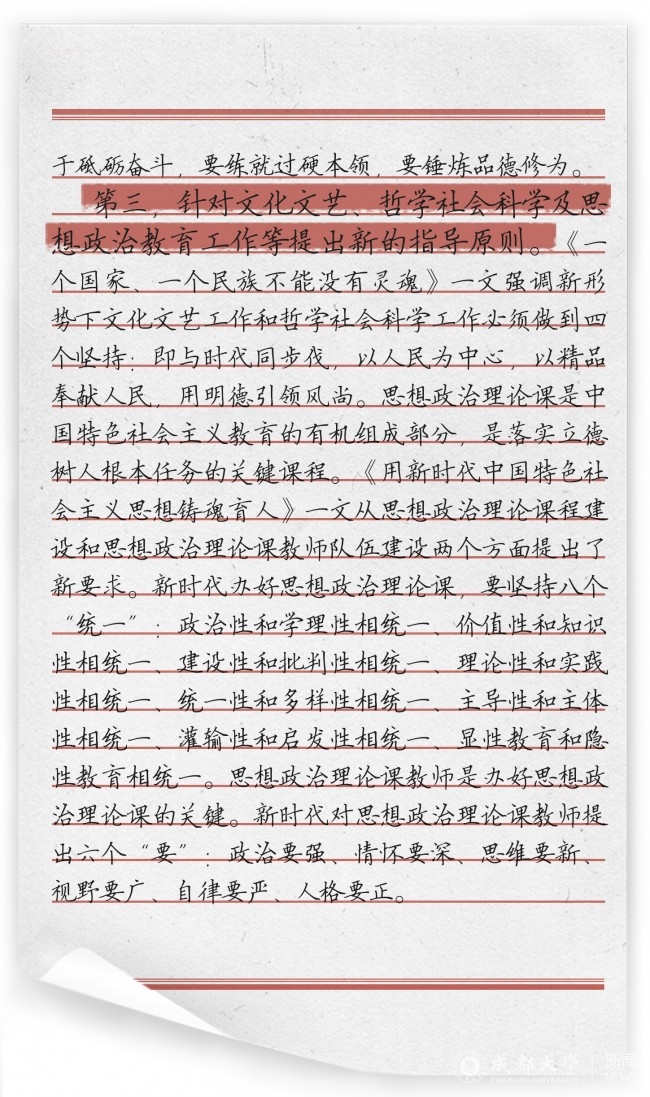 于砥砺奋斗，要练就过硬本领，要锤炼品德修为。
第三，针对文化文艺、哲学社会科学及思
想政治教育工作等提出新的指导原则。《一
个国家、一个民族不能没有灵魂》一文强调新形
势下文化文艺工作和哲学社会科学工作必须做到四
个坚持：即与时代同步伐，以人民为中心，以精品
奉献人民，用明德引领风尚。思想政治理论课是中
国特色社会主义教育的有机组成部分，是落实立德
树人根本任务的关键课程。《用新时代中国特色社
会主义思想铸魂育人》一文从思想政治理论课程建
设和思想政治理论课教师队伍建设两个方面提出了
新要求。新时代办好思想政治理论课，要坚持八个
“统一”：政治性和学理性相统一、价值性和知识
性相统一、建设性和批判性相统一、理论性和实践
性相统一、统一性和多样性相统一、主导性和主体
性相统一、灌输性和启发性相统一、显性教育和隐
性教育相统一。思想政治理论课教师是办好思想政
治理论课的关键。新时代对思想政治理论课教师提
出六个“要”：政治要强、情怀要深、思维要新、
视野要广、自律要严、人格要正。
成都大学
CHENGDU UNIVERSITY
新闻
NEWS